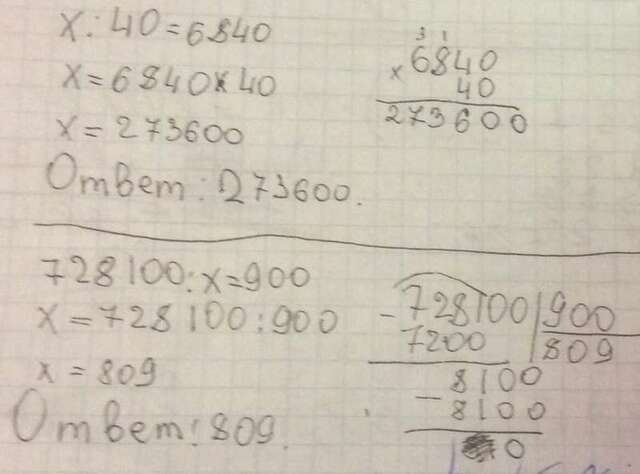 x : 40 = 6840
x = 6840 × 40
x = 273600
Ответ: 273600.
3 1
× 6840
40
273600
728100 : x = 900
x = 728100 : 900
x = 809
Ответ: 809.
- 728100 | 900
7200 | 809
8100
- 8100
0